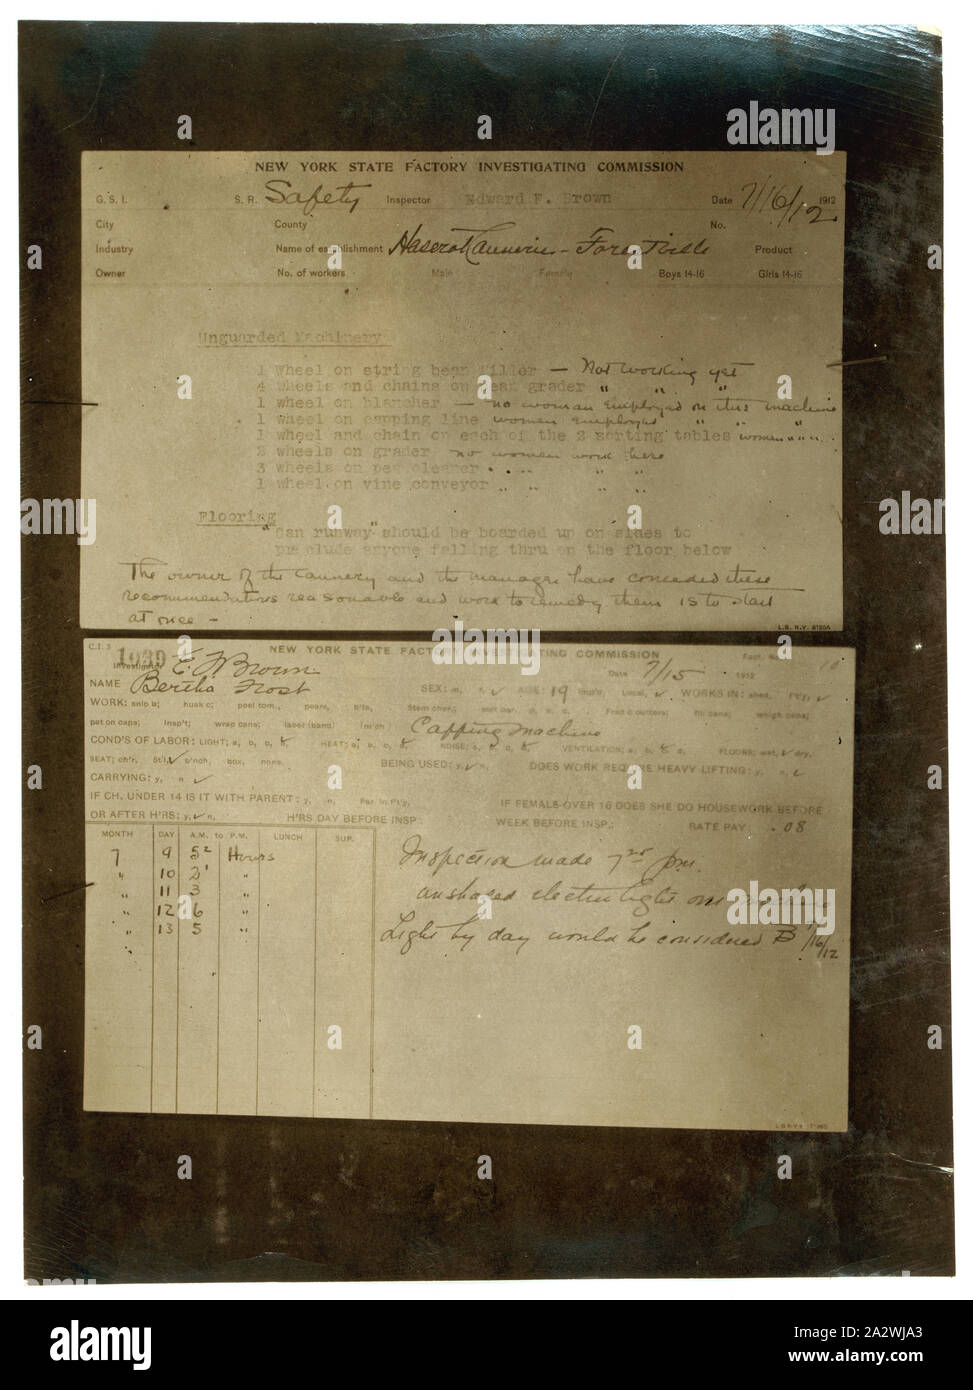 NEW YORK STATE FACTORY INVESTIGATING COMMISSION
G. S. I. S. R. Safety Inspector Edward F. Brown Date 7/16/12 1912
City County No.
Industry Name of establishment Haserot Canneries - Forestville Product
Owner No. of workers Male Female Boys 14-16 Girls 14-16
Unguarded Machinery
1 wheel on string bean filler — Not working yet
4 wheels and chains on bean grader " " "
1 wheel on blancher — no woman employed on this machine
1 wheel on capping line women employed " " "
1 wheel and chain on each of the 2 sorting tables women " " "
2 wheels on grader no women work here
3 wheels on pea cleaner " " " "
1 wheel on vine conveyor " " " "
Flooring
"Can runway" should be boarded up on sides to
preclude anyone falling thru on the floor below
The owner of the cannery and the manager have conceded these
recommendations reasonable and work to remedy them is to start
at once -
L.B. N.Y. 8120A
C.I. 3 1939 NEW YORK STATE FACTORY INVESTIGATING COMMISSION
Investigator E. F. Brown Date 7/15 1912 Fact. No. 10
NAME Bertha Frost SEX: m, f, ✓ AGE: 19 Local, ✓ WORKS IN: shed,
WORK: snip b; husk c; peel tom., pears,
pat on caps; insp't; wrap cans; label (hand) (m'ch) Capping machine weigh cans;
COND'S OF LABOR: LIGHT; a, b, c, HEAT; a, b, c, NOISE; a, b, c, VENTILATION; a, b, c, FLOORS; wet, ✓ dry,
SEAT; ch'r, St'l, ✓ b'nch, box, none. BEING USED: y, ✓ n, DOES WORK REQUIRE HEAVY LIFTING: y, n, ✓
CARRYING: y, n ✓
IF CH. UNDER 14 IS IT WITH PARENT: y, n, Par. in f't'y, IF FEMALE OVER 16 DOES SHE DO HOUSEWORK BEFORE
OR AFTER H'RS: y, ✓ n, H'RS DAY BEFORE INSP: WEEK BEFORE INSP.: RATE PAY: .08
MONTH DAY A.M. to P.M. LUNCH SUP.
7 9 5 Hours Inspection made 7 pm.
" 10 2 "
" 11 3 " unshaded electric light on machine
" 12 6 "
" 13 5 " Light by day would be considered B 7/16/12
alamy
Image ID: 2A2WJA3
www.alamy.com